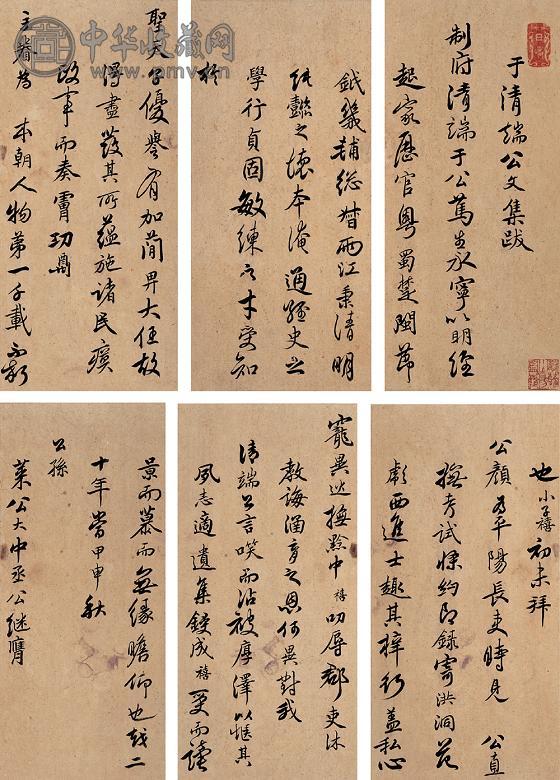 于清端公文集跋
制府清端于公篤生永寧以明經
起家歷官粵蜀楚閩節
鉞畿輔總督兩江秉清明
純懿之懷本淹通經史之
學行貞固敏練之才受知
於
聖天子優譽有加簡畀大任故
得盡發其所蘊施諸民瘼
故事而奏膚功
主眷為 本朝人物第一千載不朽
也小子禧初未拜
公顏為平陽長吏時見 公直
撫考試條約即錄寄洪洞范
彪西進士趣其梓行蓋私心
景而慕而無緣瞻仰也越二
十年當甲申秋
公孫
萊公大中丞公繼膺
寵異迨撫黔中禧叨辱吏沐
教誨涵育之恩何異對我
清端公言咲而沾被厚澤以愜其
夙志適遺集鋟成禧受而讀
中华收藏网